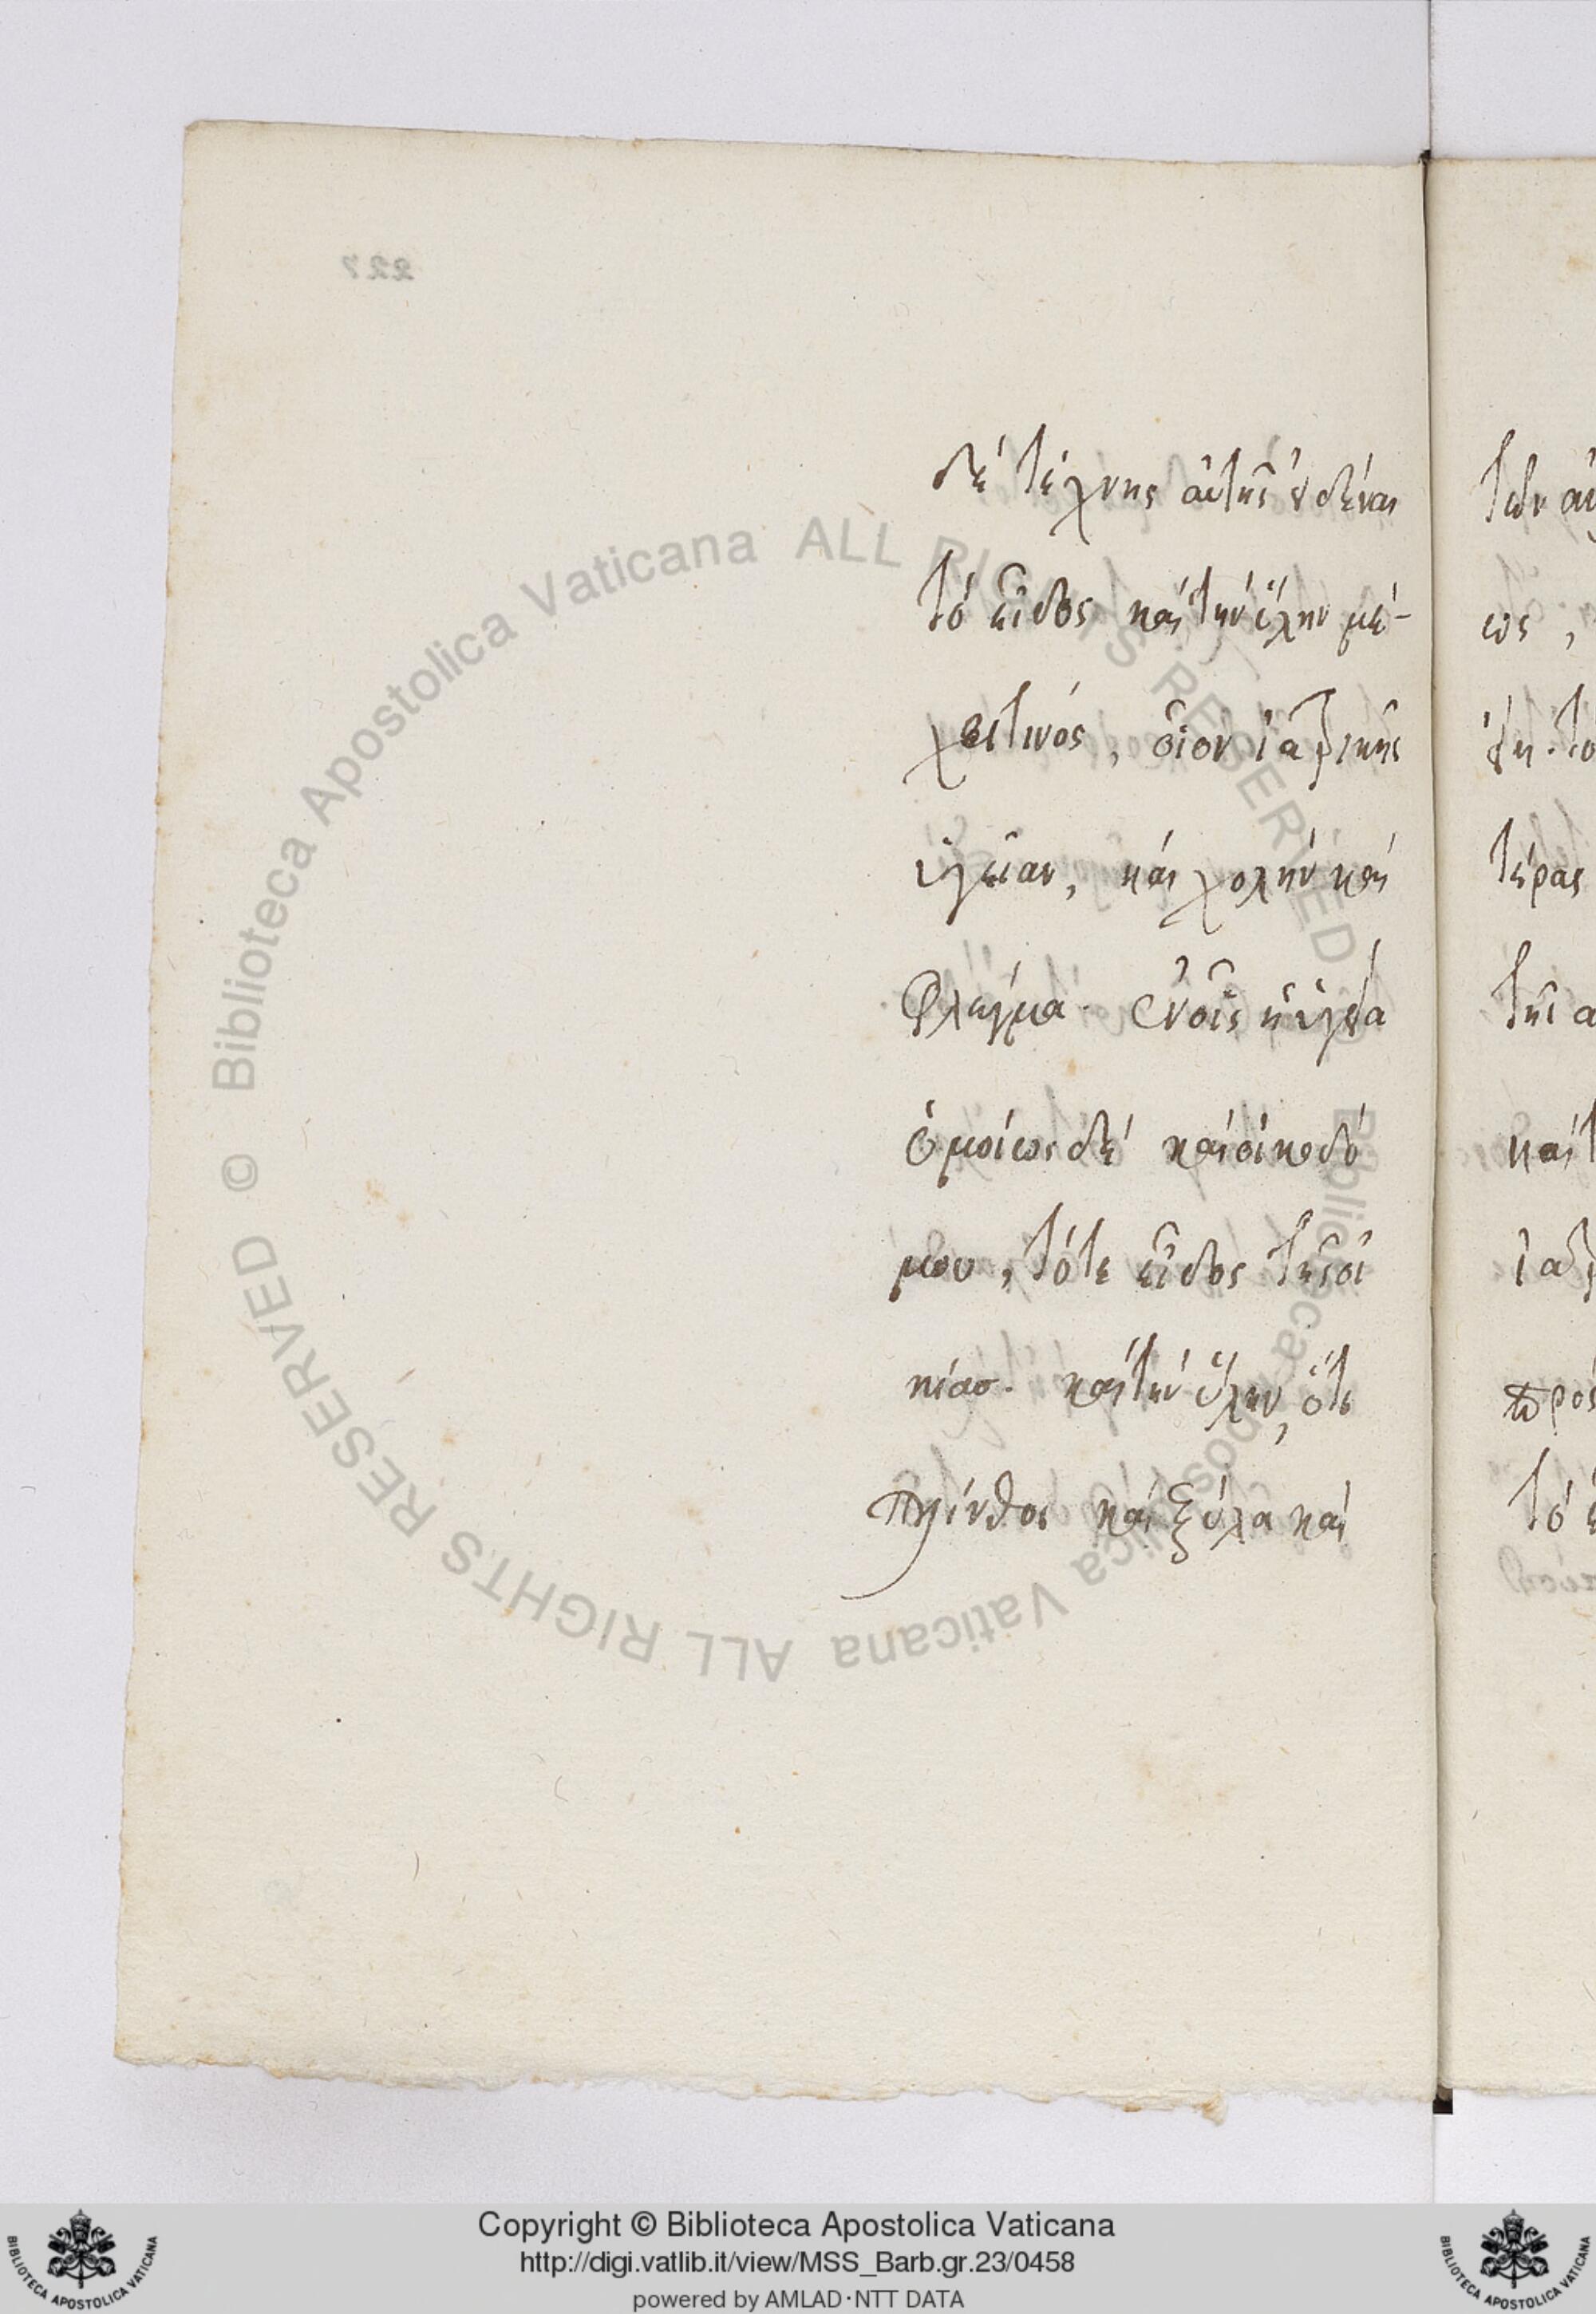 δὲ τέχνης αὐτῆς εἰδέναι
τὸ εἶδος καὶ τὴν ὕλην μέ-
χρι τινός, οἷον ἰατρικῆς
ὑγείαν, καὶ χολὴν καὶ
φλέγμα. ἐν οἷς ἡ ὑγεία
ὁμοίως δὲ καὶ οἰκοδό
μου, τότε εἶδος τῆς οἰ
κίας. καὶ τὴν ὕλην, ὅτι
πλίνθοι καὶ ξύλα καὶ
τῶν
ως,
τέρας
καὶ
πρὸς
227
© Biblioteca Apostolica Vaticana ALL RIGHTS RESERVED
Biblioteca Apostolica Vaticana ALL RIGHTS RESERVED
Copyright © Biblioteca Apostolica Vaticana
http://digi.vatlib.it/view/MSS_Barb.gr.23/0458
powered by AMLAD·NTT DATA
BIBLIOTECA APOSTOLICA VATICANA
BIBLIOTECA APOSTOLICA VATICANA